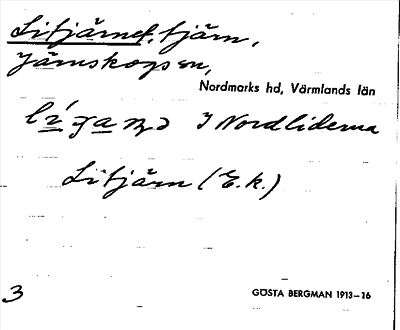 Litjärnet, tjärn,
Järnskogs sn,
Nordmarks hd, Värmlands län
I Nordliderna
Litjärn (E.k.)
3
GÖSTA BERGMAN 1913–16